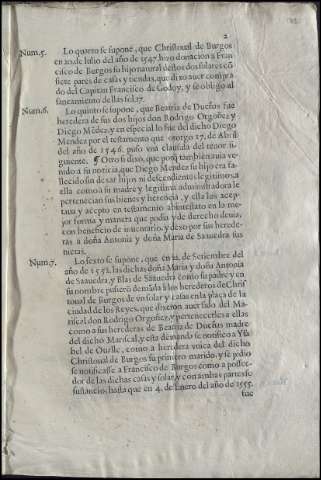 2
Num.5. Lo quarto se supone, que Christoual de Burgos
en 20. de Iulio del año de 1547. hizo donacion a Fran
cisco de Burgos su hijo natural destos dos solares cõ
siete pares de casas y tiendas, que dixo auer compra
do del Capitan Francisco de Godoy, y se obligo al
saneamiento dellas fol. 7.
Num.6. Lo quinto se supone, que Beatriz de Dueñas fue
heredera de sus dos hijos don Rodrigo Orgoñez, y
Diego Mẽdez, y en especial lo fue del dicho Diego
Mendez por el testamento que otorgo 17. de Abril
del año de 1546. puso vna clausula del tenor si-
guente. ¶ Otro si dixo, que porq̃ tambien auia ve-
nido a su noticia, que Diego Mendez su hijo era fa-
llecido sin dexar hijos ni descendientes legitimos, a
ella como a su madre y legitima administradora le
pertenecian sus bienes y herencia, y ella los acep-
taua y acepto en testamento abintestato en la me-
jor forma y manera que podia y de derecho deuia,
con beneficio de inuentario, y dexo por sus herede-
ras a doña Antonia y doña Maria de Saauedra sus
nietas.
Num.7. Lo sexto se supone, que en 12. de Setiembre del
año de 1552. las dichas doña Maria y doña Antonia
de Saauedra, y Blas de Saauedra como su padre y en
su nombre pusierõ demãda a los herederos de Chris
toual de Burgos de vn solar y casas en la plaça de la
ciudad de los Reyes, que dixeron auer sido del Ma-
riscal don Rodrigo Orgoñez, y pertenecerles a ellas
como a sus herederas de Beatriz de Dueñas madre
del dicho Mariscal, y esta demanda se notifico a Ysa
bel de Oualle, como a heredera vnica del dicho
Christoual de Burgos su primero marido, y se pidio
se notificasse a Francisco de Burgos como a posse-
dor de las dichas casas y solar, y con ambas partes se
sustancio, hasta que en 4. de Enero del año de 1555.
fue